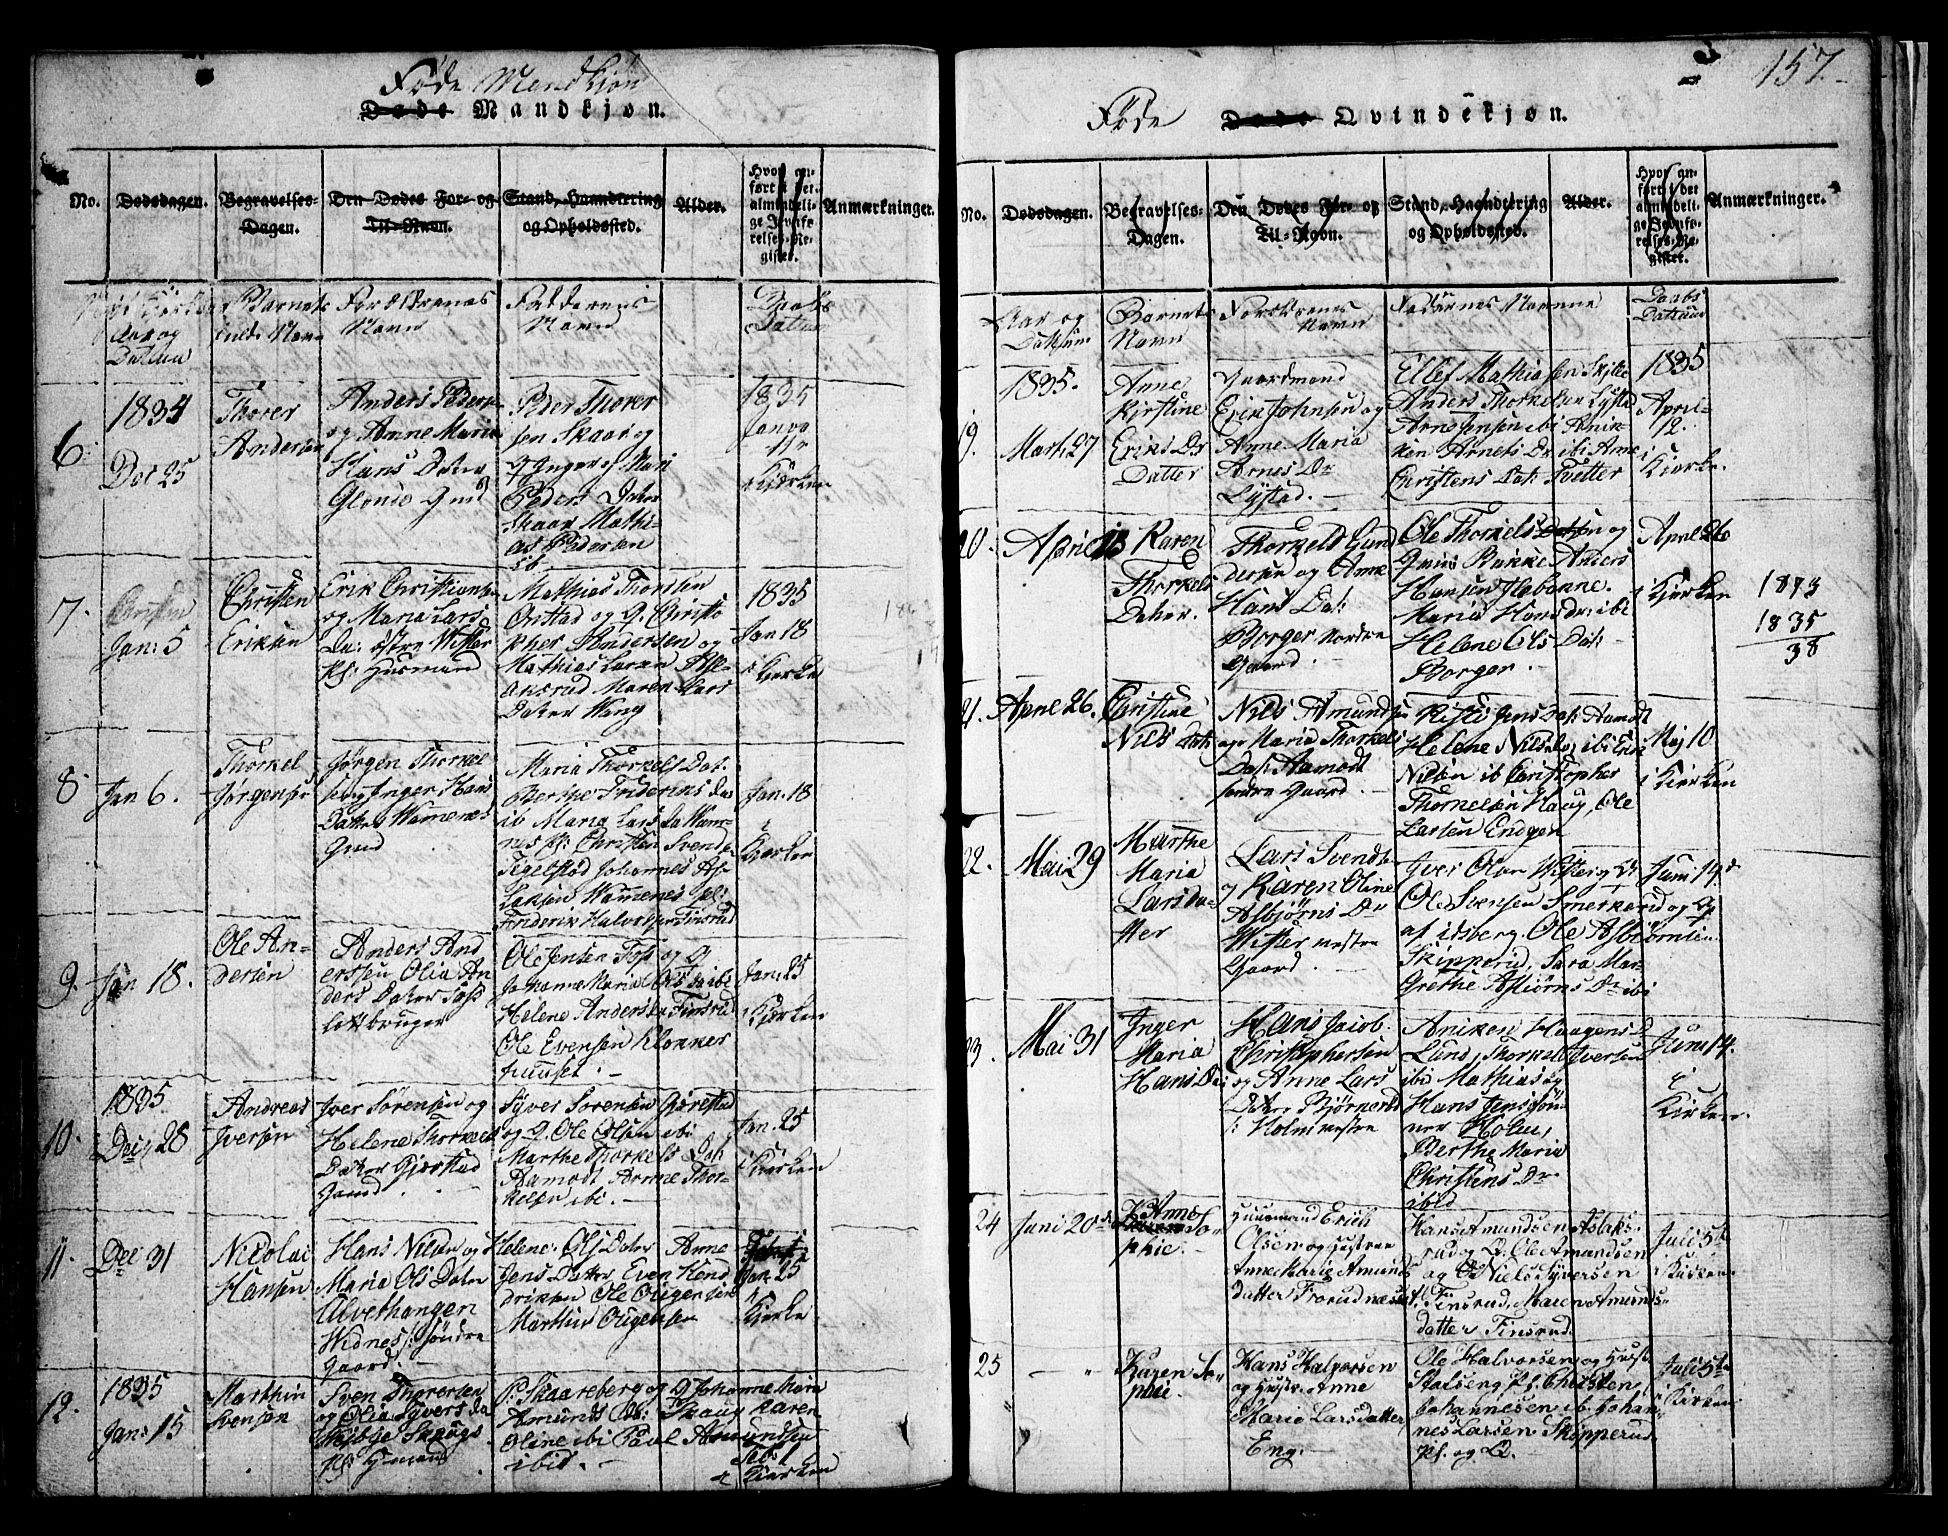 Føde Mendkiøn
Døde Mandkjøn.
No.
Dødsdagen.
Begravelses-
Dagen.
Den Dødes For- og
Til-Navn.
Stand, Haandtering
og Opholdssted.
Alder.
Hvor an-
ført i det
almindeli-
ge Jevnfø-
relses-Re-
gister.
Anmærkninger.
Aar og
Datum
Barnets
Navn
Forældrenes
Navn
Faddernes
Navn
Daabs
Datum
6.
1834
Dec 25
Thorer
Andersen
Anders Peders
og Anne Marie
Hans Dater
Glenne Gaard
Peder Thorer
sen Skaar og
Q Inger og Mari
Peders Dater
Skaar Mathi-
as Pedersen
ib
1835
Janva
11
i Kierken
7.
Jan: 5
Christen
Eriksen
Erik Christiansen
og Maria Lars
Da: østre Wister
Pl: Husmand
Mathias Thorsen
Ovstad og Q. Christo
pher Andersen og
Mathias Larsen
Maren Lars
Dater Wang
1835
Jan 18
i Kierke
8
Jan 6.
Thorkel
Jørgensen
Jørgen Thorkel
sen og Inger Hans
Dater Wamenes
Gaard
Maria Thorkels Dat.
Berthe Friderines da
ib Maria Lars da Wam-
nes Pl: Christen Svends.
Tegelstad Johannes As-
laksen Wamenes Pl:
Friderik Halvorsen Finsrud
Jan. 18
i
Kierken
9.
Jan 18.
Ole An-
dersen
Anders And
erssen Olia An
ders Dater Foss
leilbruger
Ole Jensen Foss og Q
Johanne Maria Ols Da ibi
Helene Anders Dr Finsrud
Ole Evensen Klokker
huuset. -
Jan: 25
i Kierken
10.
1835
Dec, 28
Andreas
Iversen
Iver Sørensen og
Helene Thorkels
Dater Gjerstad
Gaard
Syver Sorensen Gjerstad
og Q. Ole Olsen ibi
Marthe Thorkels Dat:
Aamodt Arnne Thor-
kelsen ibi. -
Jan. 25
i Kierken
11.
Dec 31
Nicolai
Hansen
Hans Nilsen og
Maria Ols Dater
Ulvethangen
Widnes /: søndre
Gaard. -
Helene Ols Dater Anne
Jens Datter Even Hend
driksen Ole Eugensen
Marthin Eugensen
Jan. 25
i
Kierke
12.
1835
Jan: 15
Marthin
Svensen
Sven Thorersen
og Olia Syvers Da
Skibse Skougs
Pl: Husmand
P: Skaareberg og Q Johanne Maria
Amunds Dt: Skoug Karen
Oline ibi Paul Amundsen
ibid. -
Feb: 1
i Kierken
157.
Føde Døde Qvindekjøn.
No.
Dødsdagen.
Begravelses-
Dagen.
Den Dødes For- og
Til-Navn.
Stand, Haandtering
og Opholdssted.
Alder.
Hvor an-
ført i det
almindeli-
ge Jevnfø-
relses-Re-
gister.
Anmærkninger.
Aar og
Datum
Barnets
Navn
Forældrenes
Navn
Faddernes Navne
Daabs
Datum
19.
1835.
Mart: 27
Anne
Kirstine
Eriks Dr
Datter
Gaardmand
Erik Johnsen og
Anne Maria
Arnes Dr
Lystad. -
Ellef Mathiasen Skille
Anders Thorkelsen Lystad
Arne Jensen ibi Anik-
ken Arnets Dr ibi Anne
Christens Dat: Tvetter
1835
April
12.
i
Kierke.
20.
April 13
Karen
Thorkels
Dater.
Thorkeld Gund
dersen og Anne
Hans Dat:
Borger nordre
Gaard.
Ole Thorkels Datter og
Q Bakke Anders
Hansen Habonne.
Maria Hans Dr: ibi
Helene Ols Dat:
Borger. -
April 26
i Kierken
1873
1835
38
21.
April 26.
Christine
Nils Dat:
Nils Amundsen
og Maria Thorkels
Dat: Aamodt
søndre Gaard. -
Kisti Jens Dat: Aamodt
Helene Nils Da, ibi Erik
Nilsen ib Christopher
Thorkelsen Haug, Ole
Larsen Endgen
Maj 10
i Kierken
22.
Mai 29
Marthe
Maria
Larsda-
tter
Lars Svends
og Karen Oline
Asbjørns Dr
Wister vestre
Gaard. -
Iver Olsen Wister og Q
Ole Svensen Smerkerud og Q
af idsberg. Ole Asbiørnsen
Skipperud, Sara Mar-
Grethe Asbiørns Dr ibi
Juni 14.
23.
Mai 31
Inger
Maria
Hans Da:
Hans Jacob
Christophersen
og Anne Lars
Dater Bjørnerud
/: Holm vestre
Aniken Haagens D
Lund, Thorkel Iversen
ibi Mathias og
Hans Jens søn
ner Holm,
Berthe Maria
Christens Dr
ibid
Juni 14.
i
Kirken.
24
Juni 20de
Anne
So-
phie.
Huusmand Erich
Olsen og Hustrue
Anne Marie Amunds
datter Frorudneset,
Hans Amundsen Aslaks-
rud og Q. Ole Amundsen
og Q Niels Syversen
Finsrud, Maren Amunds-
datter Finsrud.
Juli 5te
i Kirken.
25
- "
Karen So-
phie.
Hans Halvorsen
og Hustr. Anne
Marie Larsdatter
Eng. -
Ole Halvorsen og Hust.
Stalseng Pl. Christen
Johannesen ibi Johan-
nes Larsen Skipperud
Pl. og Q.
Juli 5te
i Kirken